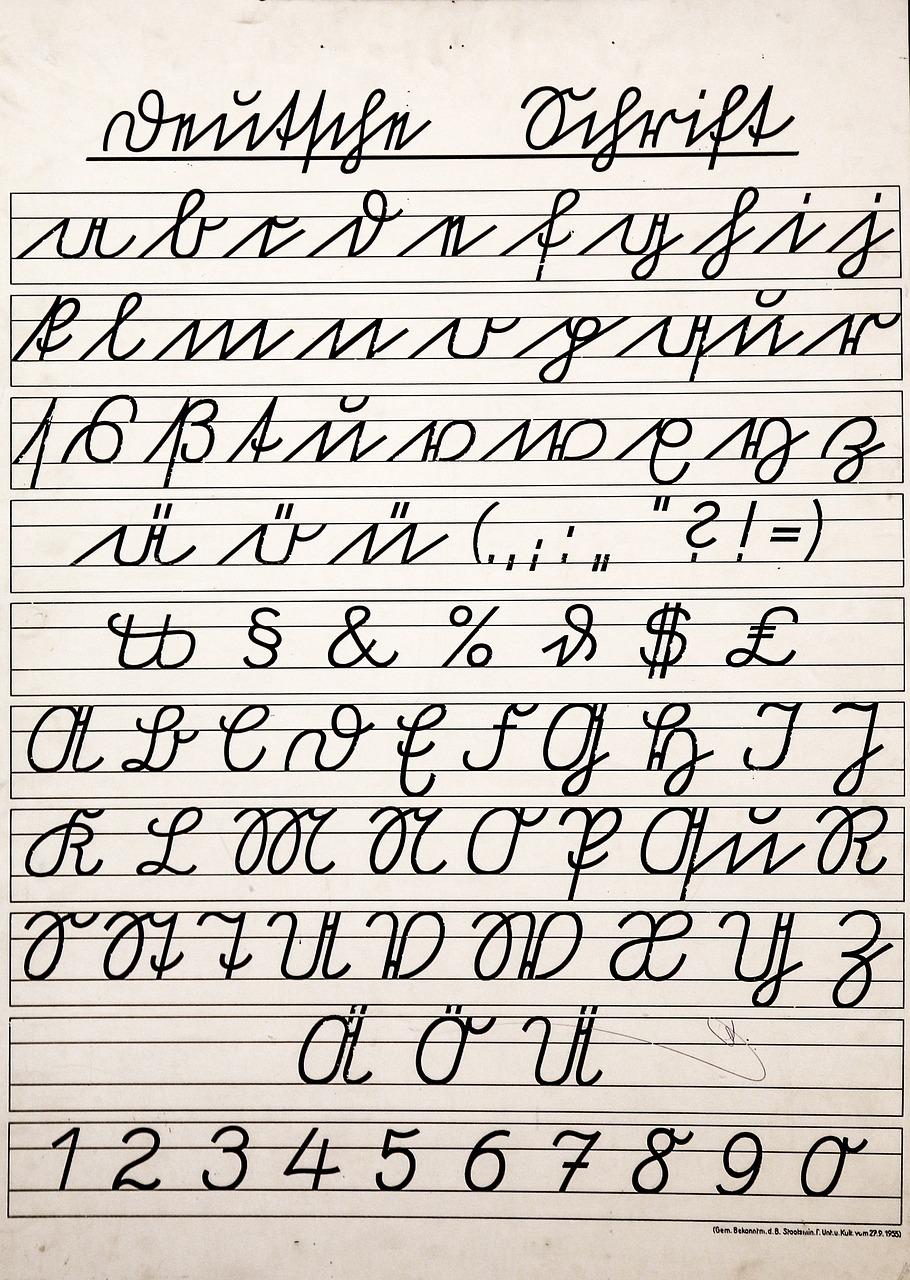 Deutsche Schrift
a b c d e f g h i j
k l m n o p qu r
ſ s ß t u v w x y z
ä ö ü (., ; : „ " ? ! =)
& % $ £
A B C D E F G H I J
K L M N O P Qu R
S St T U V W X Y Z
Ä Ö Ü
1 2 3 4 5 6 7 8 9 0
(Gem. Bekanntm. d. B. Staatsmin. f. Unt. u. Kult. vom 27.9.1955)